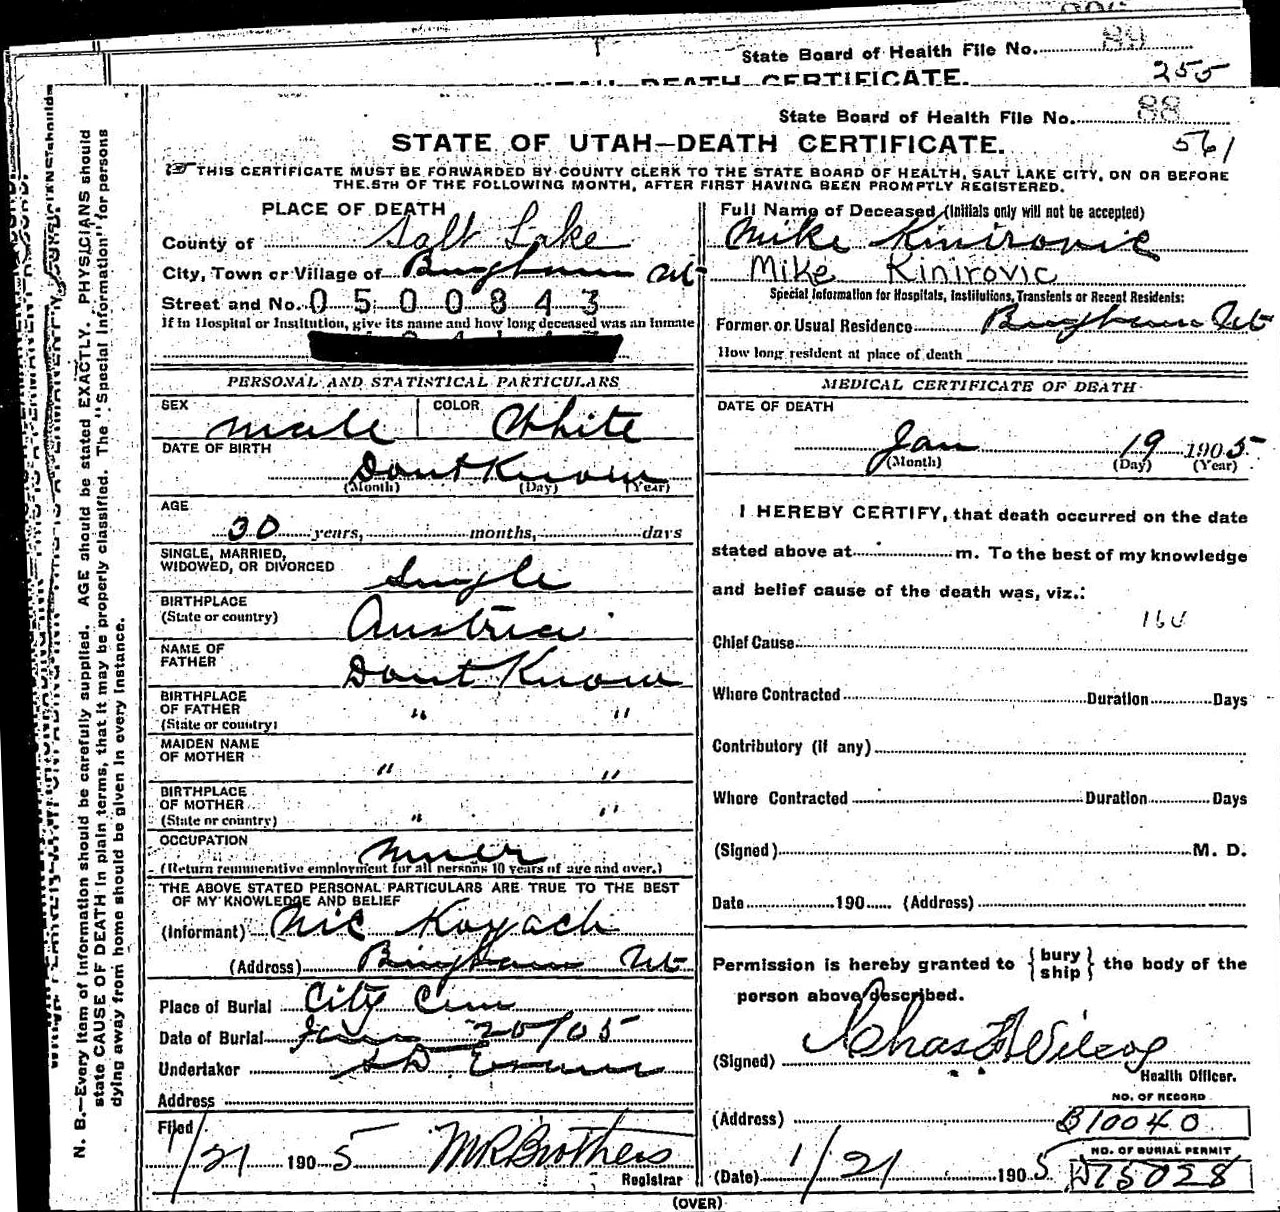 State Board of Health File No. 89
255
State Board of Health File No. 88
561
STATE OF UTAH—DEATH CERTIFICATE.
THIS CERTIFICATE MUST BE FORWARDED BY COUNTY CLERK TO THE STATE BOARD OF HEALTH, SALT LAKE CITY, ON OR BEFORE
THE 5TH OF THE FOLLOWING MONTH, AFTER FIRST HAVING BEEN PROMPTLY REGISTERED.
PLACE OF DEATH
County of Salt Lake
City, Town or Village of Bingham Ut
Street and No. 0500843
If in Hospital or Institution, give its name and how long deceased was an Inmate
PERSONAL AND STATISTICAL PARTICULARS
SEX male COLOR White
DATE OF BIRTH
Dont Know
(Month) (Day) (Year)
AGE
30 years, months, days
SINGLE, MARRIED,
WIDOWED, OR DIVORCED Single
BIRTHPLACE
(State or country) Austria
NAME OF
FATHER Dont Know
BIRTHPLACE
OF FATHER " "
(State or country)
MAIDEN NAME
OF MOTHER " "
BIRTHPLACE
OF MOTHER " "
(State or country)
OCCUPATION Miner
(Return remunerative employment for all persons 10 years of age and over.)
THE ABOVE STATED PERSONAL PARTICULARS ARE TRUE TO THE BEST
OF MY KNOWLEDGE AND BELIEF
(Informant) Nic Koyach
(Address) Bingham Ut
Place of Burial City Cem
Date of Burial Jan 20/05
Undertaker S D Evans
Address
Filed
1/21 1905 MR Brothers
Registrar
Full Name of Deceased (Initials only will not be accepted)
Mike Kinirovic
Mike Kinirovic
Special Information for Hospitals, Institutions, Transients or Recent Residents:
Former or Usual Residence Bingham Ut
How long resident at place of death
MEDICAL CERTIFICATE OF DEATH
DATE OF DEATH
Jan 19 1905
(Month) (Day) (Year)
I HEREBY CERTIFY, that death occurred on the date
stated above at m. To the best of my knowledge
and belief cause of the death was, viz.:
Chief Cause
Where Contracted Duration Days
Contributory (if any)
Where Contracted Duration Days
(Signed) M. D.
Date 190 (Address)
Permission is hereby granted to {bury ship} the body of the
person above described.
(Signed) Chas F Wilcox
Health Officer.
NO. OF RECORD
(Address) B10040
NO. OF BURIAL PERMIT
(Date) 1/21 1905 D75028
(OVER)
N. B.—Every item of information should be carefully supplied. AGE should be stated EXACTLY. PHYSICIANS should
state CAUSE OF DEATH in plain terms, that it may be properly classified. The "Special Information" for persons
dying away from home should be given in every instance.